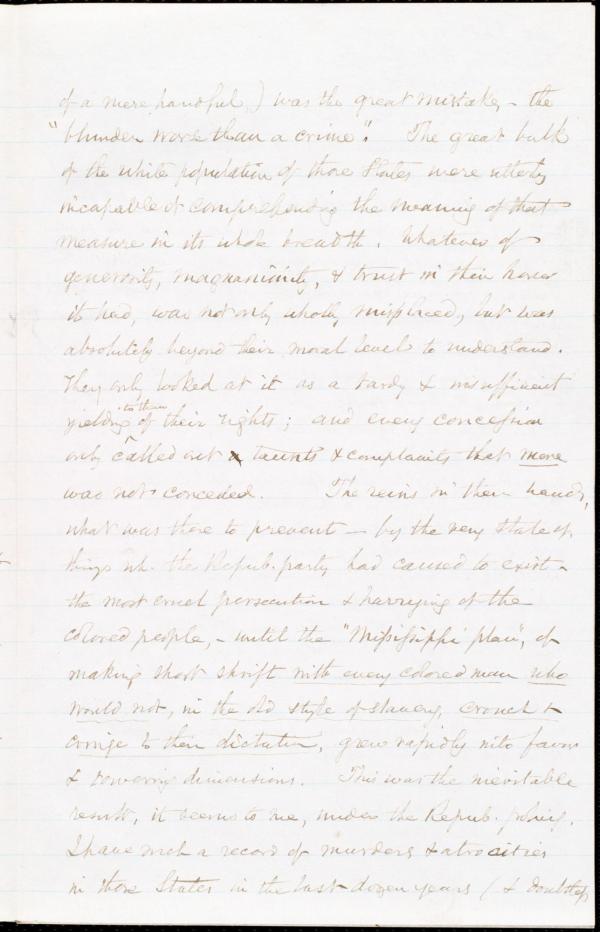 of a mere handful,) was the great mistake, - the
"blunder worse than a crime". The great bulk
of the white population of those States were utterly
incapable of comprehending the meaning of that
measure in its whole breadth. Whatever of
generosity, magnanimity, & trust in their honor
it had, was not only wholly misplaced, but was
absolutely beyond their moral level to understand.
They only looked at it as a tardy & insufficient
yielding to them of their rights; and every concession
only called out taunts & complaints that more
was not conceded. The reins in their hands,
what was there to prevent — by the very state of
things wh. the Repub. party had caused to exist -
the most cruel persecution & harrying of the
colored people, - until the "Mississippi plan", of
making short shrift with every colored man who
would not, in the old style of slavery, crouch &
cringe to their dictation, grew rapidly into favor
& towering dimensions. This was the inevitable
result, it seems to me, under the Repub. policy.
I have such a record of murders & atrocities
in those States in the last dozen years (& doubtless